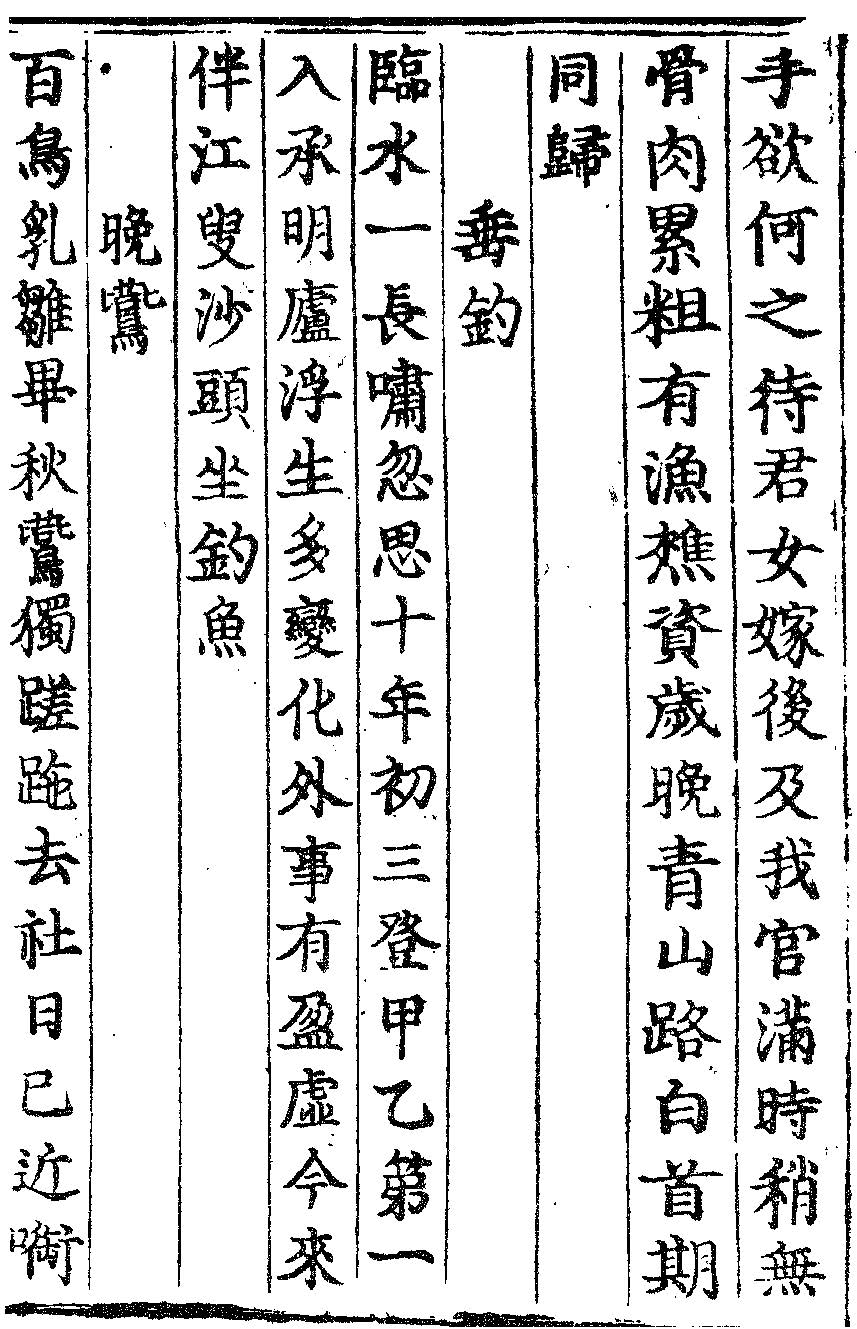 手欲何之待君女嫁後及我官滿時稍無
骨肉累粗有漁樵資歲晚青山路白首期
同歸
垂釣
臨水一長嘯忽思十年初三登甲乙第一
入承明廬浮生多變化外事有盈虛今來
伴江叟沙頭坐釣魚
晚鷰
百鳥乳雛畢秋鷰獨蹉跎去社日已近啣